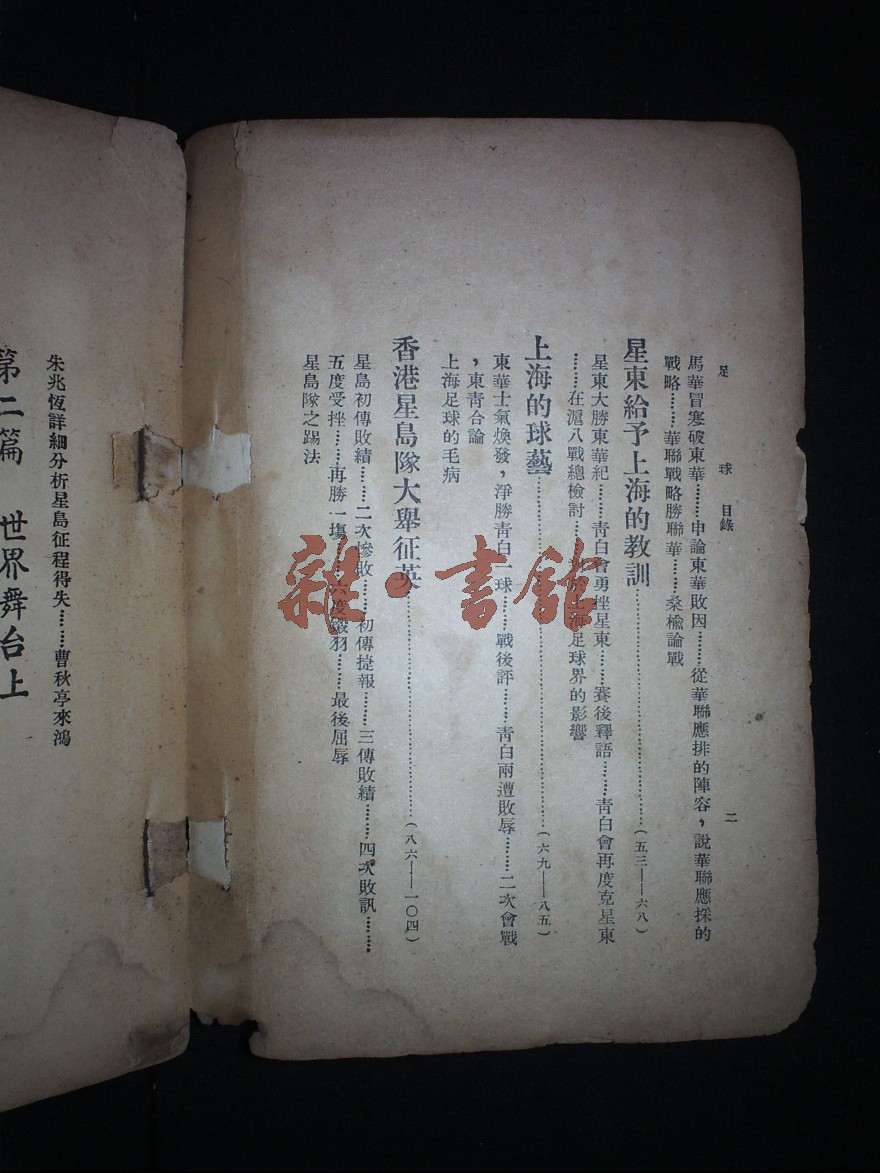 足球 目錄 二
馬華冒寒破東華………申論東華敗因………從華聯應排的陣容，說華聯應採的
戰略………華聯戰略勝聯華………桑楡論戰
星東給予上海的教訓………（五三——六八）
星東大勝東華紀………靑白會勇挫星東………賽後釋語………靑白會再度克星東
………在滬八戰總檢討………海足球界的影響
上海的球藝………（六九——八五）
東華士氣煥發，淨勝靑白一球………戰後評………靑白兩遭敗辱………二次會戰
，東靑合論
上海足球的毛病
香港星島隊大舉征英………（八六——一〇四）
星島初傳敗績………二次慘敗………初傳捷報………三傳敗績………四次敗訊………
五度受挫………再勝一塲………六度鎩羽………最後屈辱
星島隊之踢法
朱兆恆詳細分析星島征程得失………曹秋亭來鴻
第二篇 世界舞台上
雜·書館